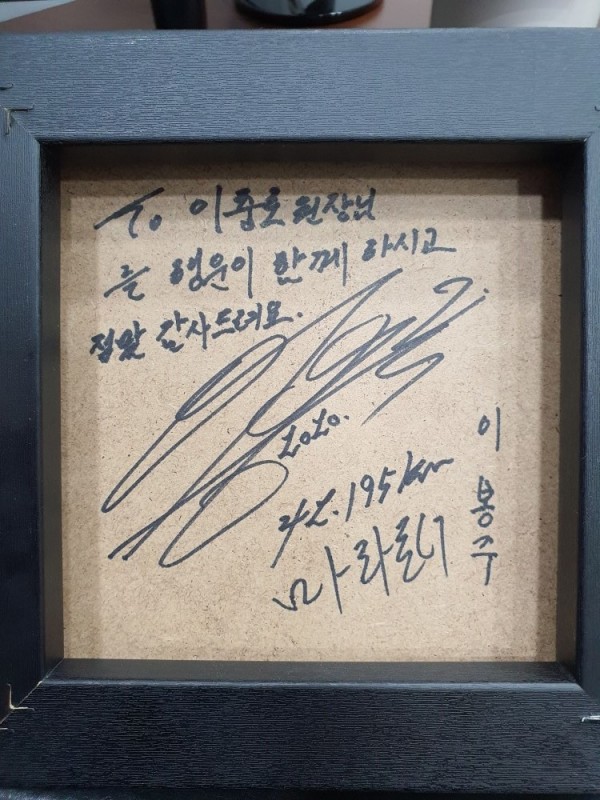 To 이중호 원장님
늘 행운이 함께 하시고
정말 감사드려요.
2020.
42.195km
마라토너
이봉주